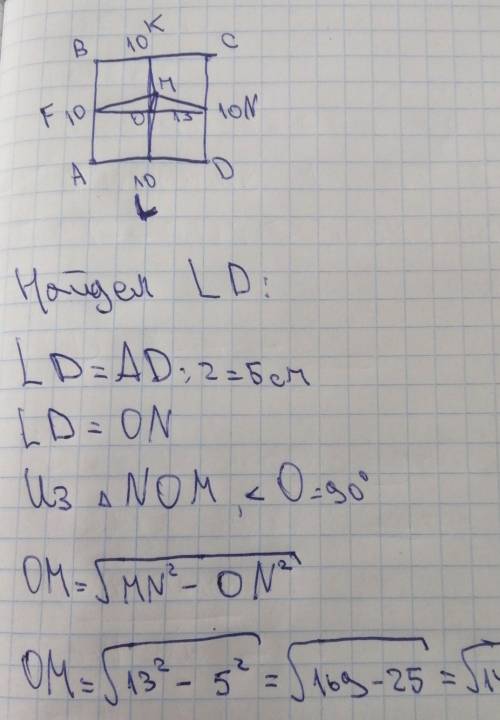 K
B 10 C
M
F 10 O 13 10N
A 10 D
L
Найдем LD:
LD = AD : 2 = 5 см
LD = ON
Из △ NOM, < O = 90°
OM = √MN² - ON²
OM = √13² - 5² = √169 - 25 = √14